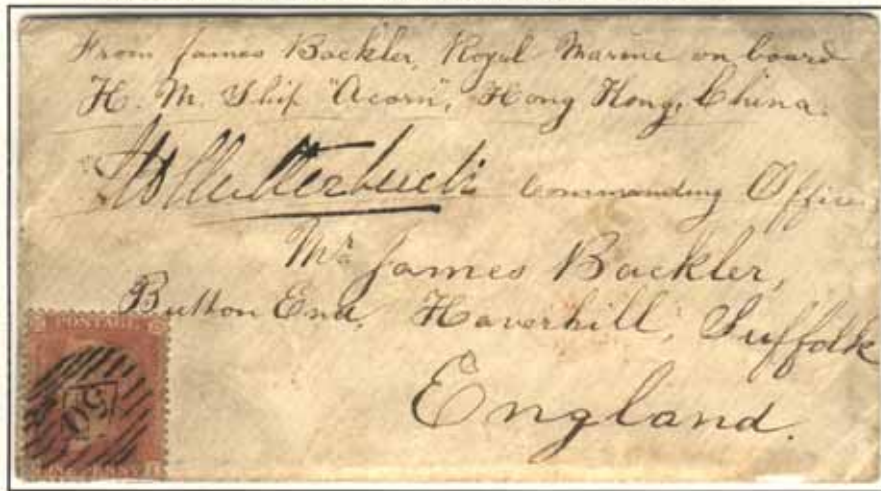 From James Backler, Royal Marine on board
H. M. Ship "Acorn", Hong Kong, China.
Clutterbuck Commanding Officer
Mr James Backler,
Button End, Haverhill, Suffolk
England.
POSTAGE
50